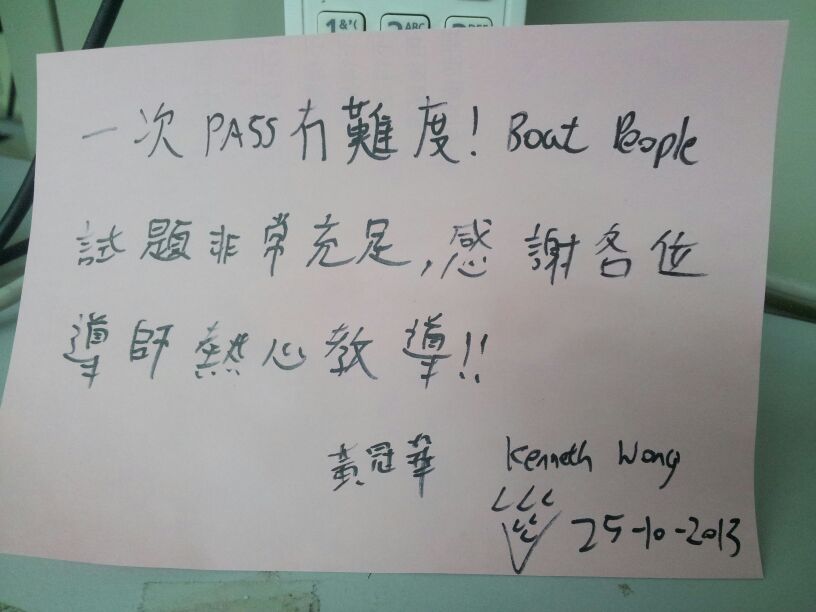 1 &'( 2 ABC DEF
一次 PASS 有難度! Boat People
試題非常充足,感謝各位
導師熱心教導!!
黃冠華 Kenneth Wong
25-10-2013